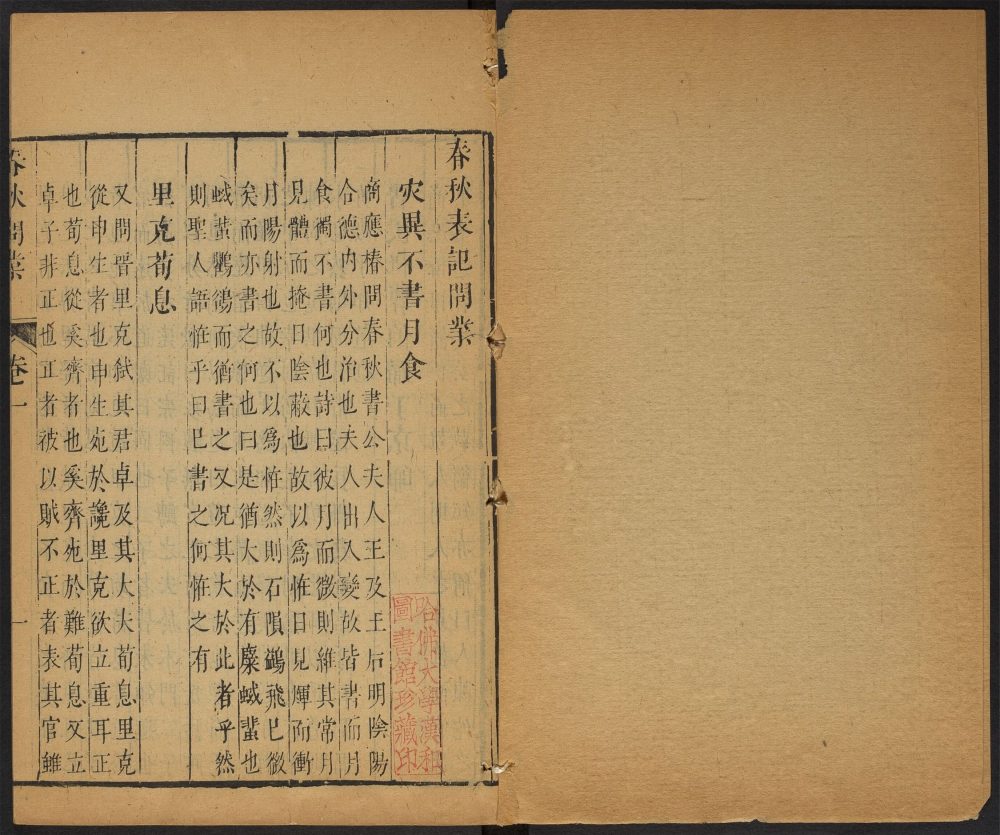 春秋表記問業
灾異不書月食
商應椿問春秋書公夫人王及王后明陰陽
合德内外分治也夫人出入變故皆書而月
食獨不書何也詩曰彼月而微則維其常月
見體而掩日陰蔽也故以爲恠日見渾而衝
月陽射也故不以爲恠然則石隕鷁飛已微
矣而亦書之何也曰是猶大於有麋蜮蜚也
蜮蜚鸛鵒而猶書之又况其大於此者乎然
則聖人語恠乎曰已書之何恠之有
里克荀息
又問晉里克弑其君卓及其大夫荀息里克
從申生者也申生死於讒里克欲立重耳正
也荀息從奚齊者也奚齊死於難荀息又立
卓子非正也正者彼以賊不正者表其官雖
春秋問業 卷一 一
哈佛大學漢和
圖書館珍藏印